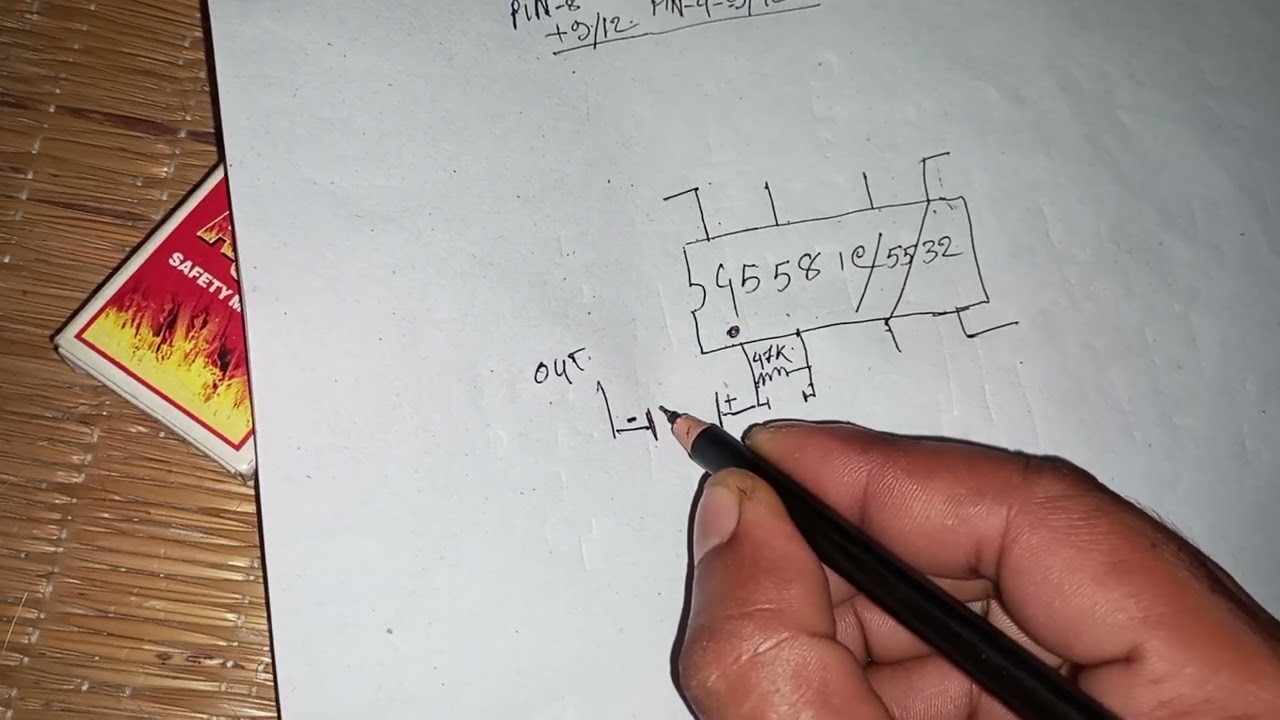 PIN-8 PIN-4-9/12
+9/12.
4558 IC/5532
47K
OUT.
+
-
SAFETY M